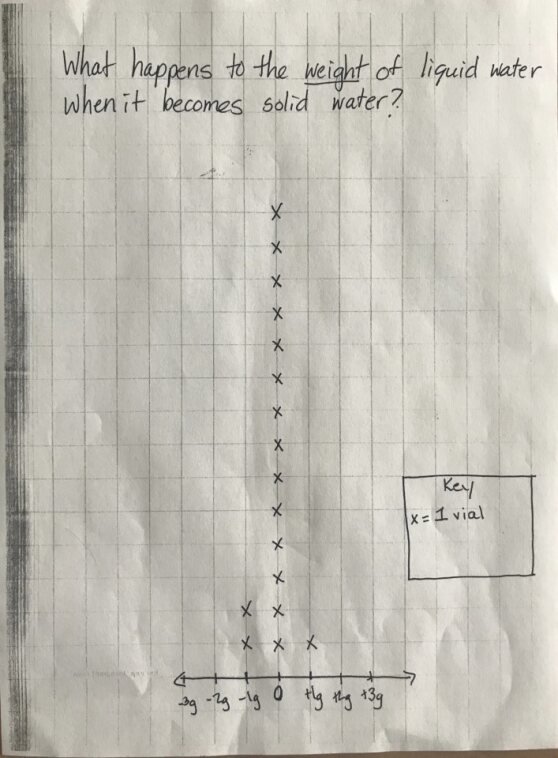 What happens to the weight of liquid water
when it becomes solid water?
X
X
X
X
X
X
X
X
X
X
X
X
X X
X X X
Key
x = 1 vial
-3g -2g -1g 0 +1g +2g +3g